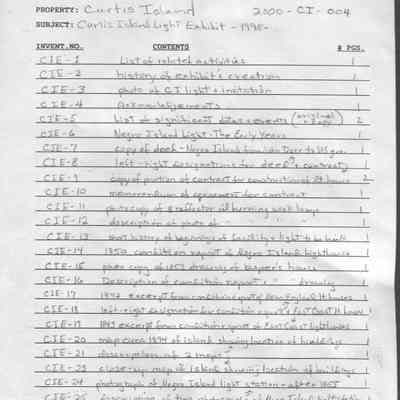 PROPERTY: Curtis Island 2000-CI-004
SUBJECT: Curtis Island Light Exhibit -1998-
INVENT.NO. CONTENTS # PGS.
CIE-1 List of related activities 1
CIE-2 history of exhibit's creation 1
CIE-3 photo of CI light & invitation 1
CIE-4 Acknowledgements 1
CIE-5 List of significant dates & events (original & copy) 2
CIE-6 Negro Island Light-The Early Years 1
CIE-7 copy of deed-Negro Island from to US gov 1
CIE-8 left-right designations for deed & contract 1
CIE-9 copy of portion of contract for construction of lt house 2
CIE-10 memorandum of agreement for contract 1
CIE-11 photo copy of 8 reflector oil burning lamps 1
CIE-12 description of photo of " " " 1
CIE-13 short history of beginnings of facility & light to be built 1
CIE-14 1850 condition report of Negro Island lighthouse 1
CIE-15 photo copy of drawing of keeper's house 1
CIE-16 Description of condition report & " " drawing 1
CIE-17 excerpt from condition report of New England lt houses 1
CIE-18 left-right designation for condition report of East Coast lt houses 1
CIE-19 1843 excerpt from condition report of East Coast lighthouses 1
CIE-20 map circa 1894 of island showing location of buildings 1
CIE-21 description of 2 maps 1
CIE-23 close-up map of island showing location of buildings 1
CIE-24 photograph of Negro Island light station-after 1 1
CIE-25 description of photograph of Negro Island light station 1